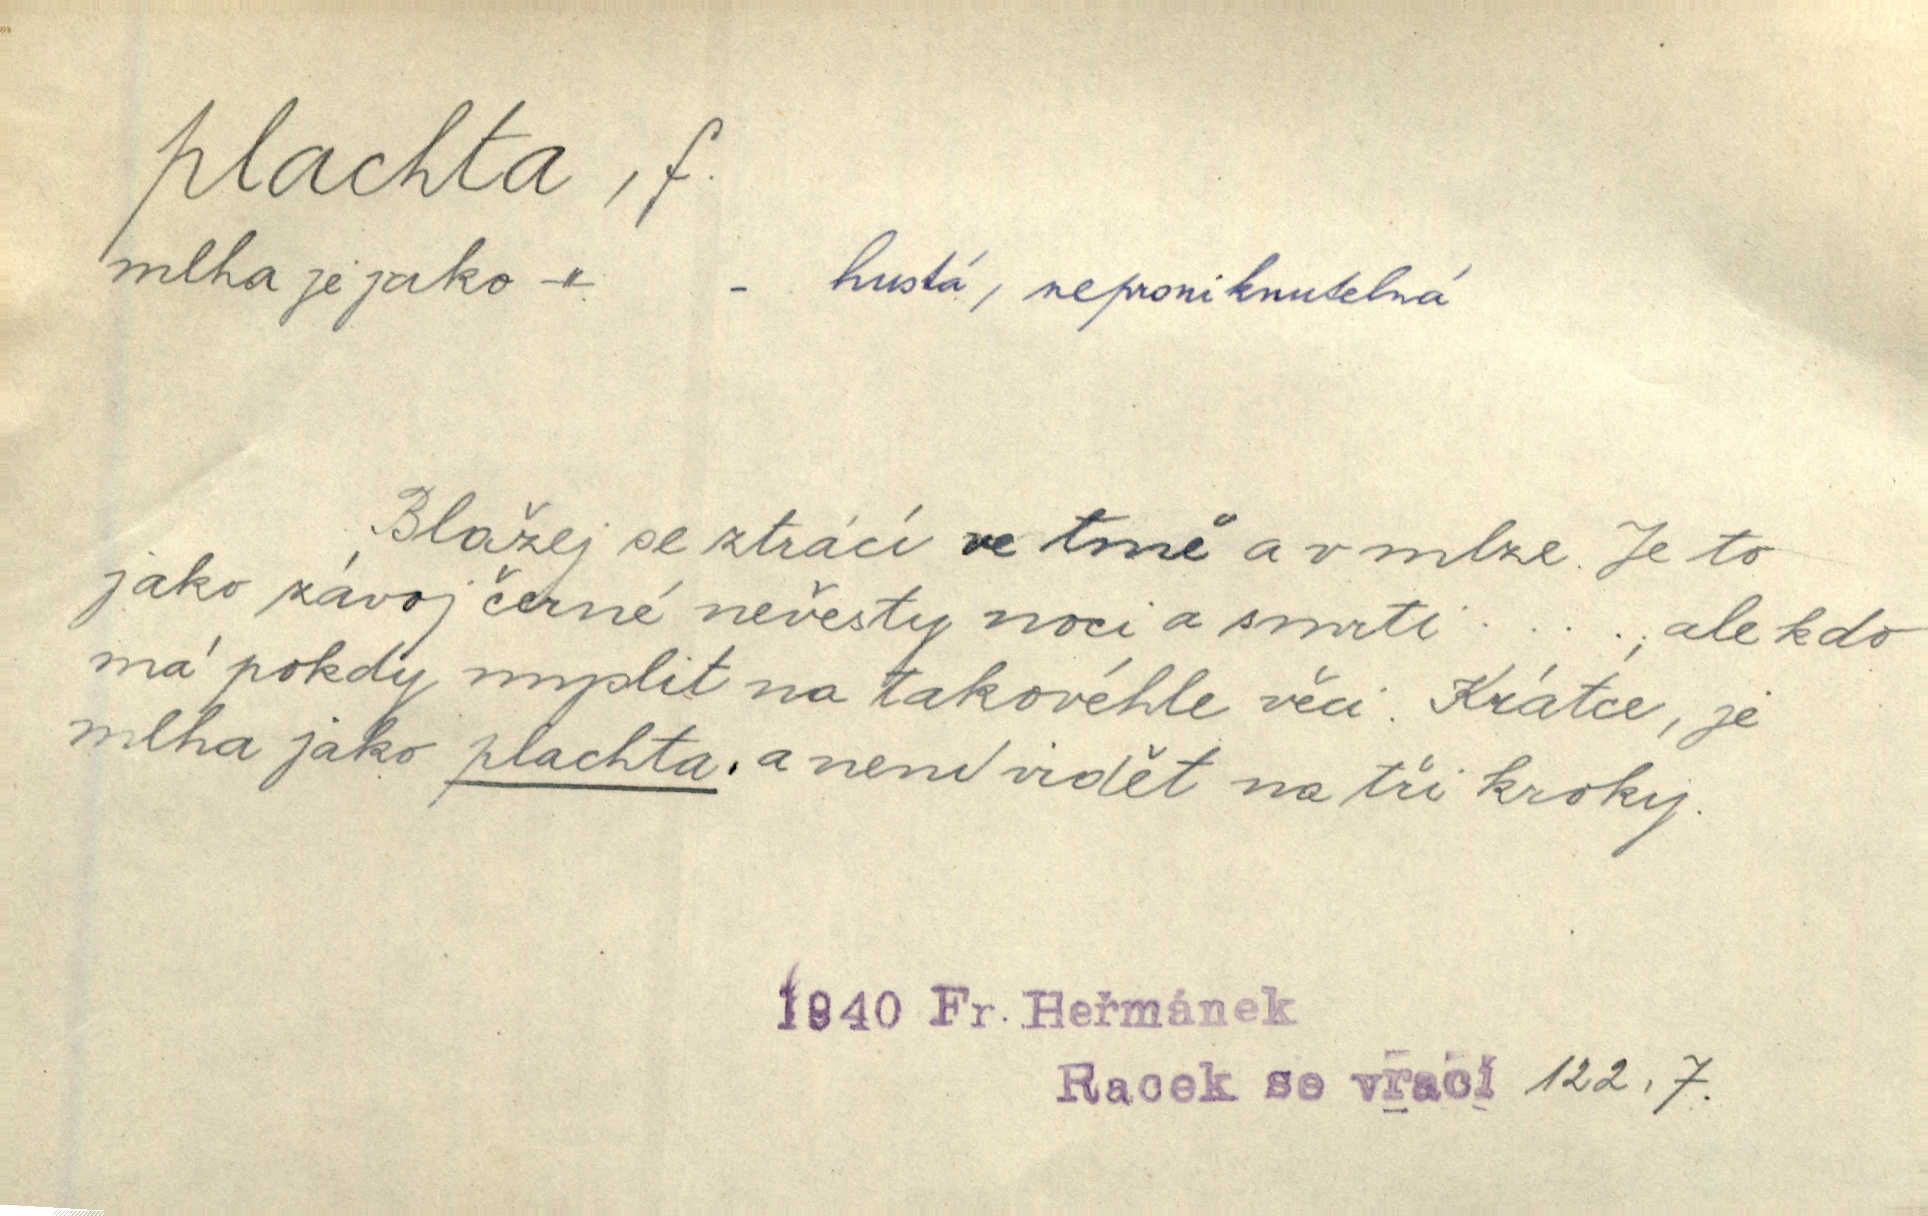 plachta, f.
mlha je jako -"- - hustá, neproniknutelná
Blažej se ztrácí ve tmě a v mlze. Je to
jako závoj černé nevěsty noci a smrti . . . ., ale kdo
má pokdy myslit na takovéhle věci. Krátce, je
mlha jako plachta, a není vidět na tři kroky.
1940 Fr. Heřmánek
Racek se vrací 122, 7.